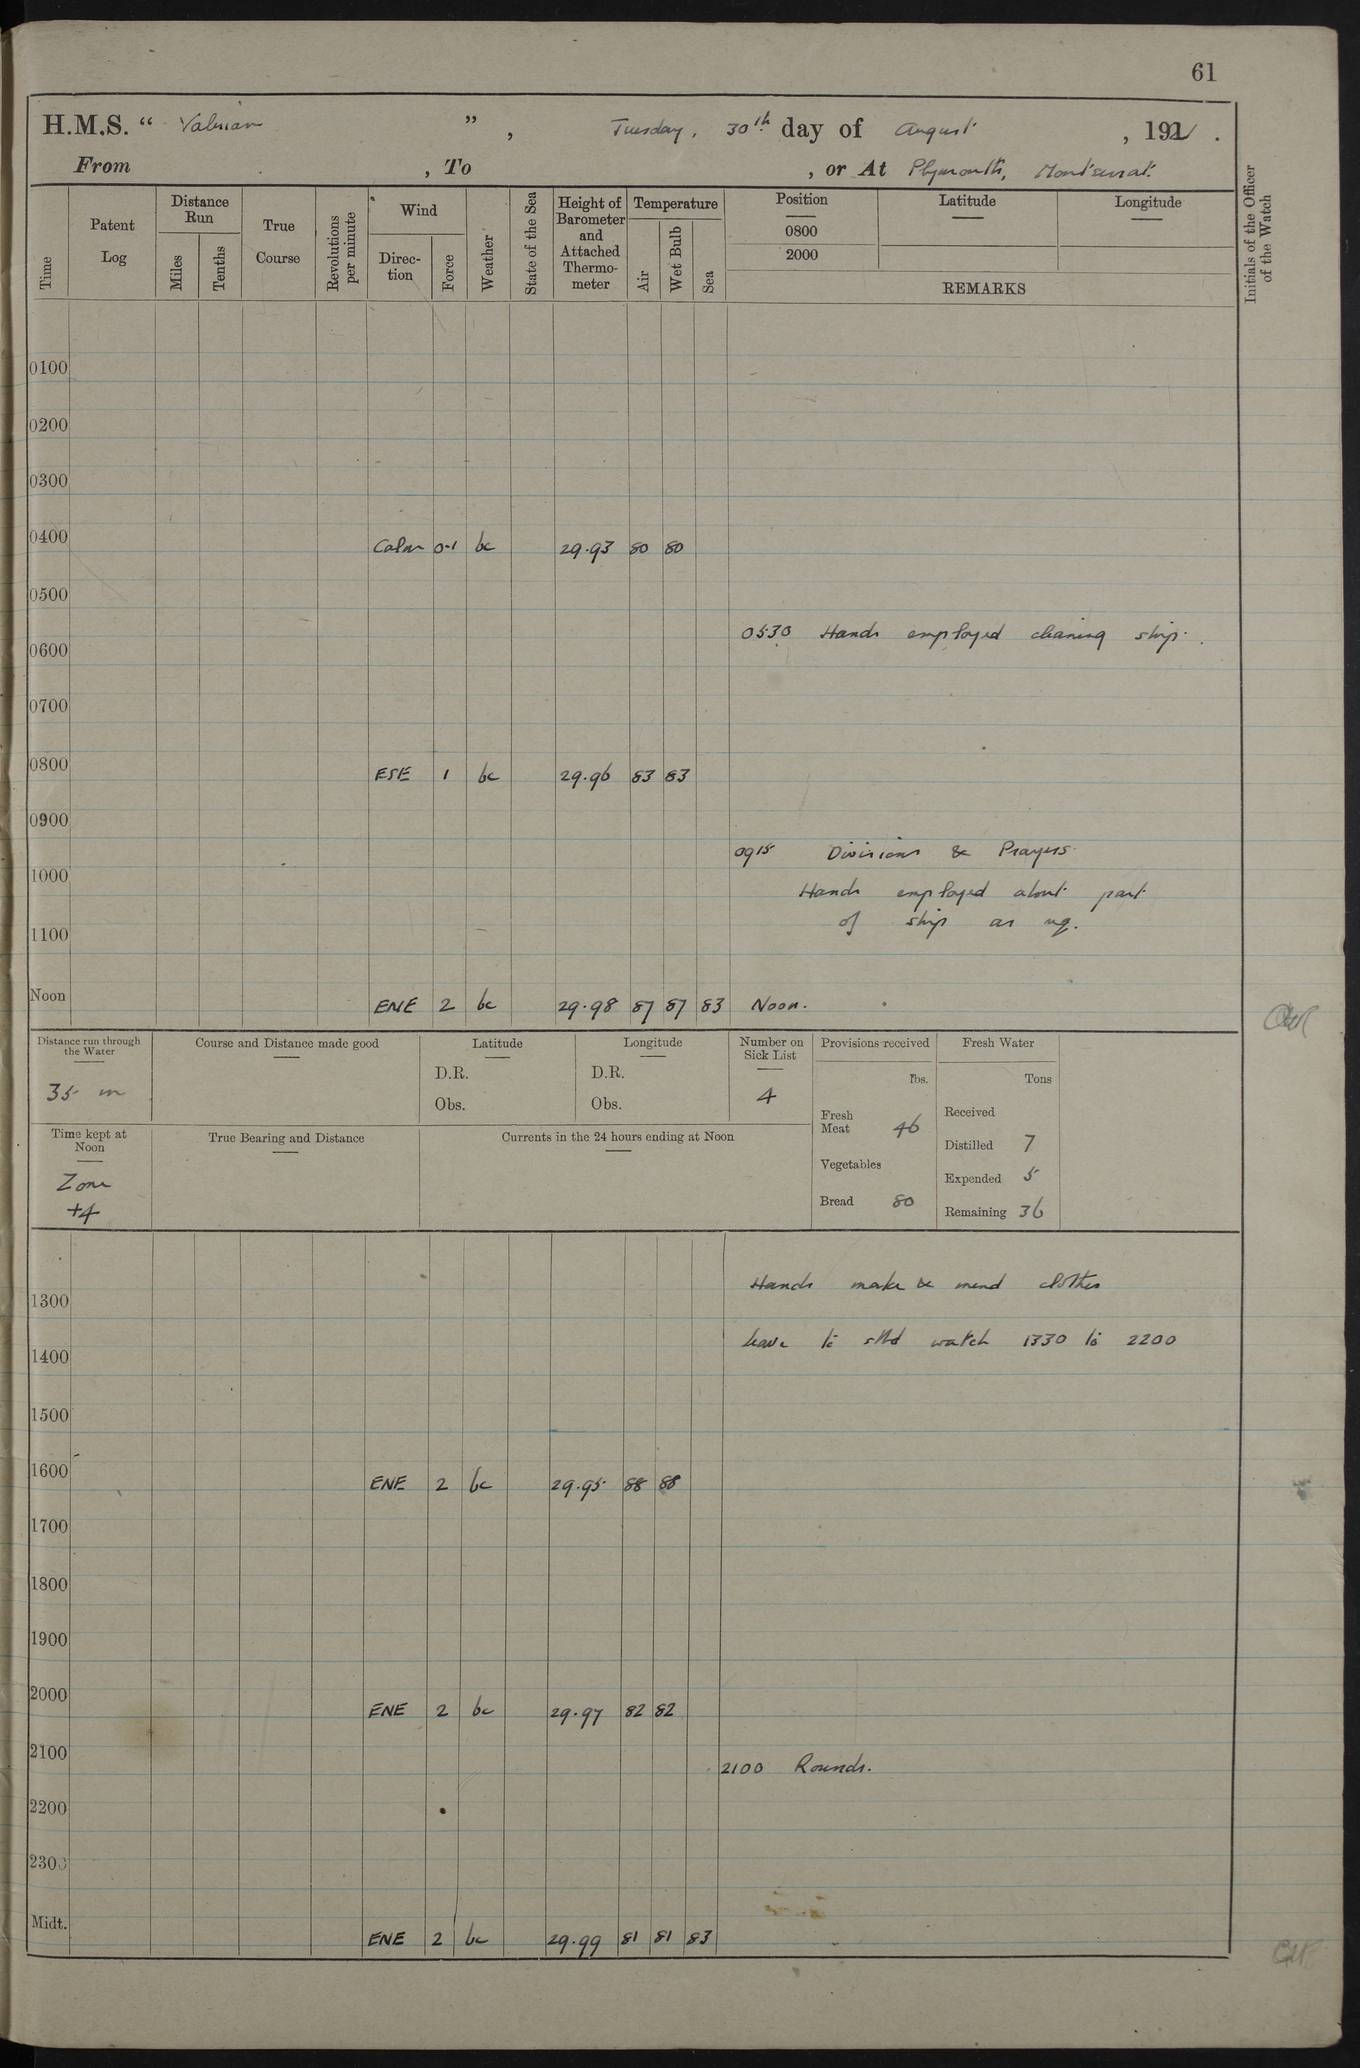 61
H.M.S. “ Valerian ” , Tuesday, 30th day of August , 1921 .
From , To , or At Plymouth, Montserrat.
Time
Patent Log
Distance Run
Miles
Tenths
True Course
Revolutions per minute
Wind
Direc-tion
Force
Weather
State of the Sea
Height of Barometer and Attached Thermo-meter
Temperature
Air
Wet Bulb
Sea
Position
0800
2000
Latitude
Longitude
REMARKS
Initials of the Officer of the Watch
0100
0200
0300
0400 Calm 0-1 bc 29.93 80 80
0500
0530 Hands employed cleaning ship.
0600
0700
0800 ESE 1 bc 29.96 83 83
0900
0915 Divisions & Prayers
1000
Hands employed about part
of ship as req.
1100
Noon ENE 2 bc 29.98 87 87 83 Noon.
Distance run through the Water
35 m
Course and Distance made good
Latitude
D.R.
Obs.
Longitude
D.R.
Obs.
Number on Sick List
4
Provisions received
lbs.
Fresh Meat 46
Vegetables
Bread 80
Fresh Water
Tons
Received
Distilled 7
Expended 5
Remaining 36
Time kept at Noon
Zone
+4
True Bearing and Distance
Currents in the 24 hours ending at Noon
Hands make & mend clothes
1300
leave to stbd watch 1330 to 2200
1400
1500
1600 ENE 2 bc 29.95 88 88
1700
1800
1900
2000 ENE 2 bc 29.97 82 82
2100
2100 Rounds.
2200
2300
Midt. ENE 2 bc 29.99 81 81 83